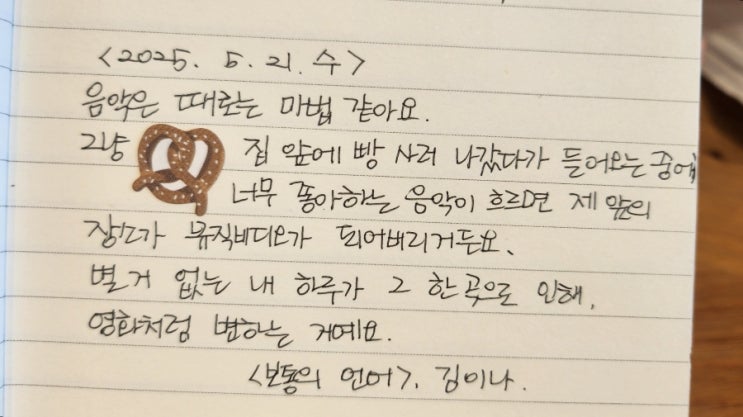 <2025. 5. 21. 수>
음악은 때로는 마법 같아요.
그냥 집 앞에 빵 사러 나갔다가 들어오는 중에
너무 좋아하는 음악이 흐르면 제 앞의
장면가 뮤직비디오가 되어버리거든요.
별 거 없는 내 하루가 그 한 곡으로 인해,
영화처럼 변하는 거예요.
<보통의 언어>, 김이나.